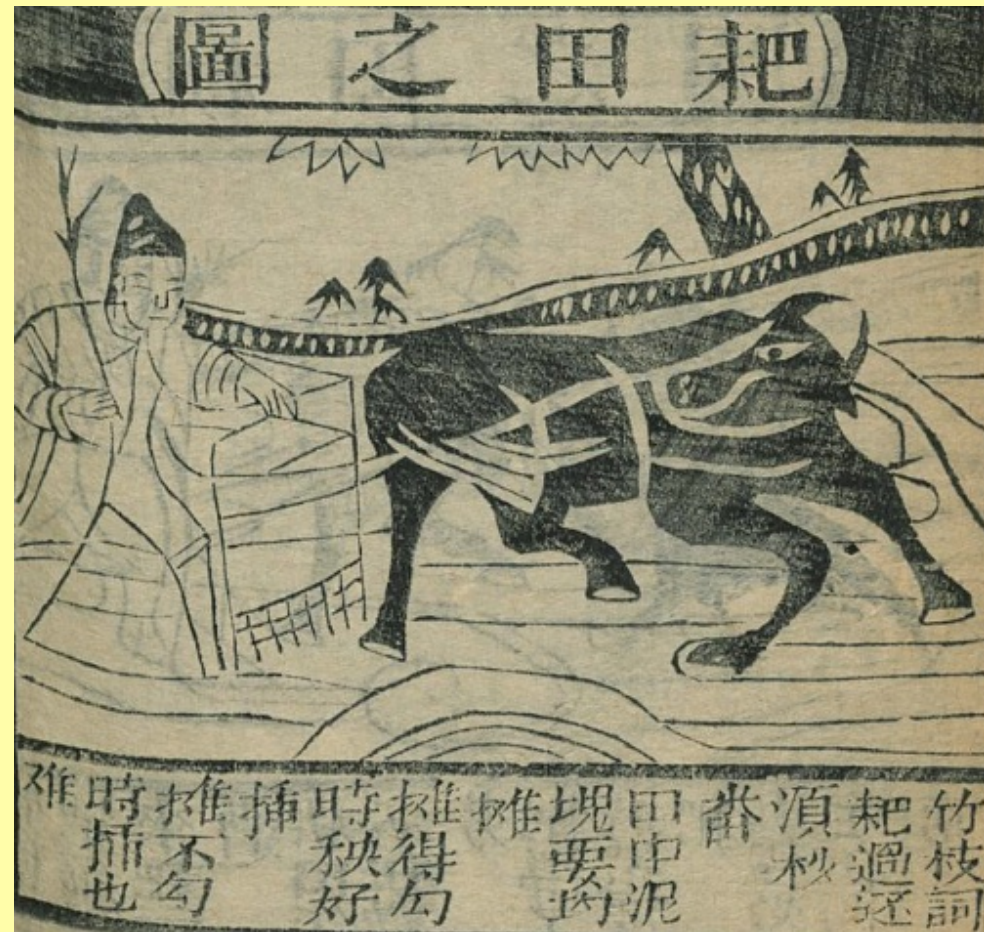 耙田之圖
竹枝詞
耙過还
湏杪
畨
田中泥
塊要均
摊
摊得勻
時秧好
插
摊不勻
時插也
难